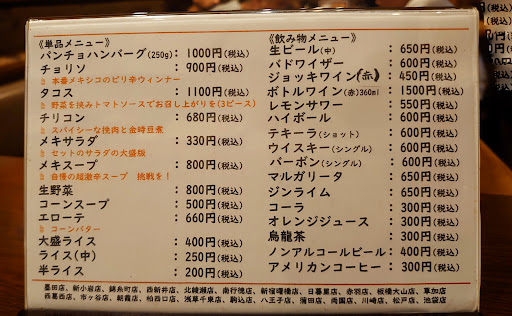 《単品メニュー》
パンチョハンバーグ(250g): 1000円(税込)
チョリソ : 900円(税込)
本番メキシコのピリ辛ウィンナー
タコス : 1100円(税込)
野菜を挟みトマトソースでお召し上がりを(3ピース)
チリコン : 680円(税込)
スパイシーな挽肉と金時豆煮
メキサラダ : 330円(税込)
セットのサラダの大盛版
メキスープ : 800円(税込)
自慢の超激辛スープ 挑戦を!
生野菜 : 800円(税込)
コーンスープ : 500円(税込)
エローテ : 660円(税込)
コーンバター
大盛ライス : 400円(税込)
ライス(中) : 250円(税込)
半ライス : 200円(税込)
《飲み物メニュー》
生ビール(中) : 650円(税込)
バドワイザー : 600円(税込)
ジョッキワイン(赤) : 450円(税込)
ボトルワイン(赤)360ml : 1500円(税込)
レモンサワー : 550円(税込)
ハイボール : 600円(税込)
テキーラ(ショット) : 600円(税込)
ウイスキー(シングル) : 600円(税込)
バーボン(シングル) : 600円(税込)
マルガリータ : 650円(税込)
ジンライム : 650円(税込)
コーラ : 300円(税込)
オレンジジュース : 300円(税込)
烏龍茶 : 300円(税込)
ノンアルコールビール : 400円(税込)
アメリカンコーヒー : 300円(税込)
墨田店、新小岩店、錦糸町店、西新井店、北綾瀬店、南行徳店、新宿曙橋店、日暮里店、赤羽店、板橋大山店、草加店
西葛西店、市ヶ谷店、朝霞店、柏西口店、浅草千束店、駒込店、八王子店、蒲田店、両国店、川崎店、松戸店、池袋店